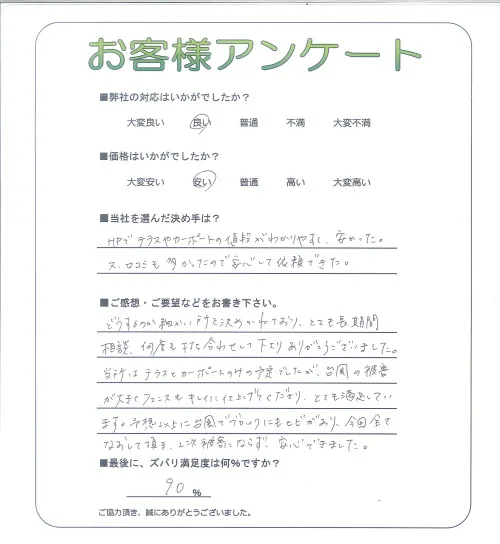 お客様アンケート
■弊社の対応はいかがでしたか？
大変良い 良い 普通 不満 大変不満
■価格はいかがでしたか？
大変安い 安い 普通 高い 大変高い
■当社を選んだ決め手は？
HPでテラスやカーポートの値段がわかりやすく、安かった。
又、口コミも多かったので安心して依頼できた。
■ご感想・ご要望などをお書き下さい。
どうするのか細かい所を決めかねており、とても長期間
相談、何度も打ち合わせして下さりありがとうございました。
当所はテラスとカーポートのみの予定でしたが、台風の被害
が大きくフェンスもキレイに仕上げてくださり、とても満足してい
ます。予想以上に台風でブロックにもヒビがあり、今回全て
なおして頂き、2次被害にならず、安心できました。
■最後に、ズバリ満足度は何％ですか？
90 ％
ご協力頂き、誠にありがとうございました。